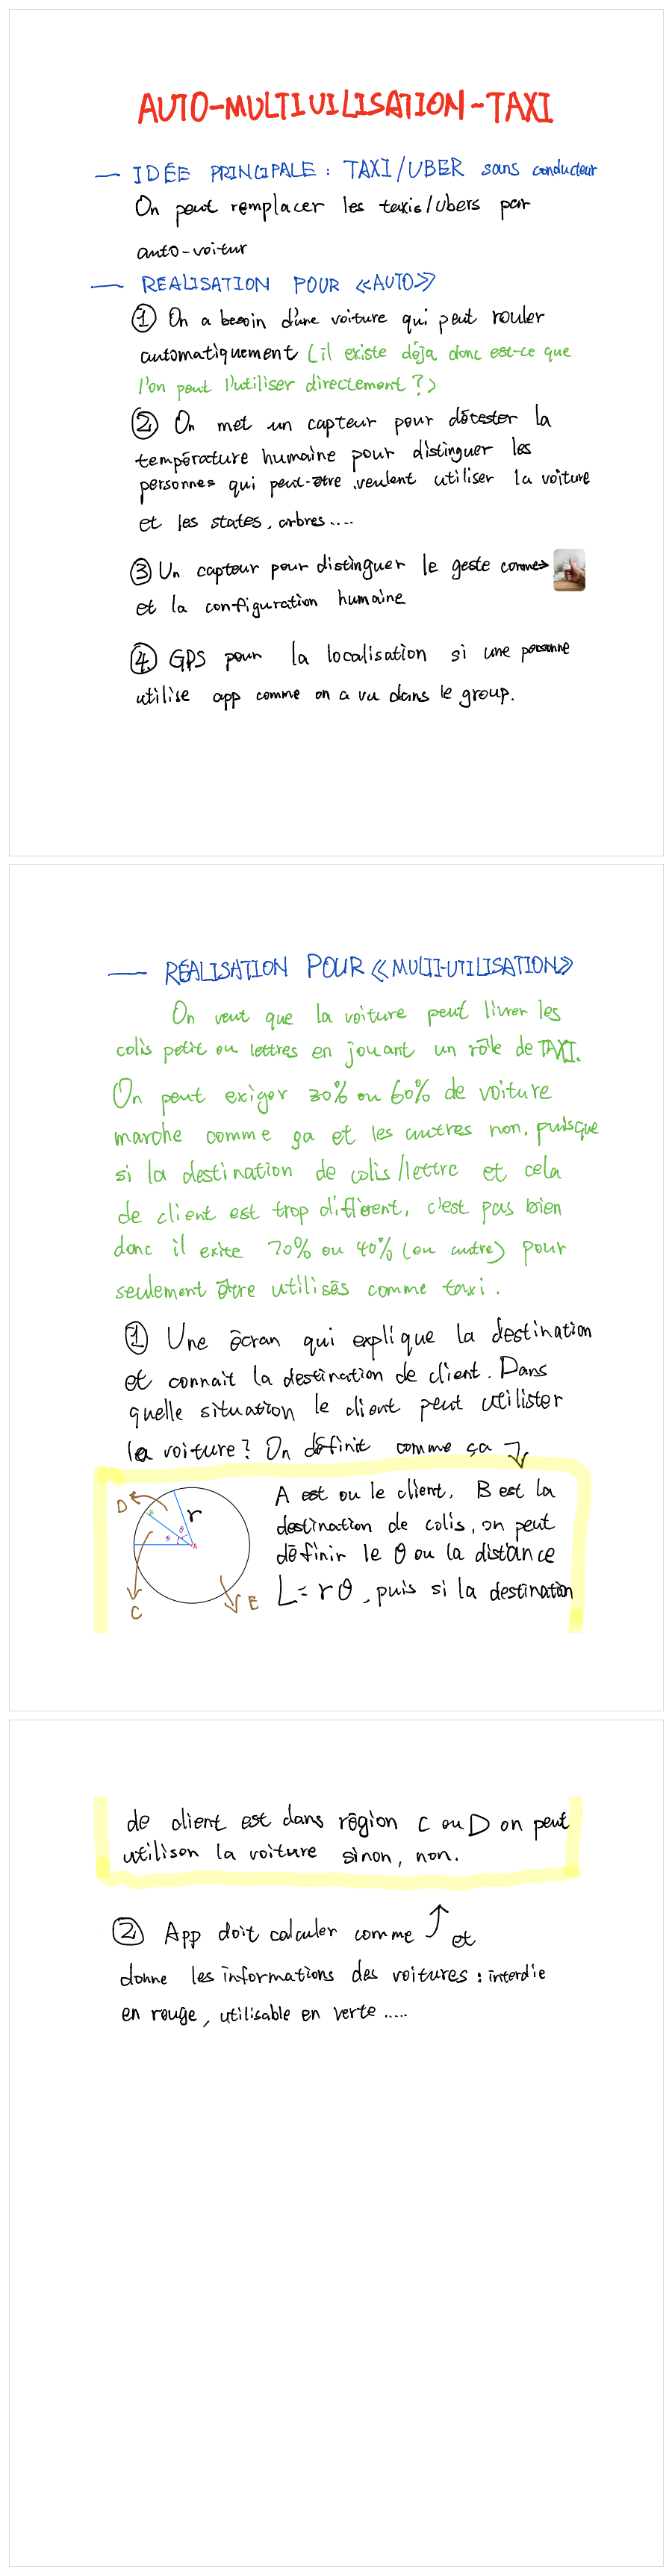 AUTO-MULTIUILISATION-TAXI
— IDÉE PRINCIPALE : TAXI/UBER sans conducteur
On peut remplacer les taxis/Ubers par
auto-voitur
— REALISATION POUR «AUTO»
① On a besoin d'une voiture qui peut rouler
automatiquement (il existe déja donc est-ce que
l'on peut l'utiliser directement ?)
② On met un capteur pour détester la
température humaine pour distinguer les
personnes qui peut-être veulent utiliser la voiture
et les states, arbres....
③ Un capteur pour distinguer le geste comme→
et la configuration humaine
④ GPS pour la localisation si une personne
utilise app comme on a vu dans le group.
— RÉALISATION POUR «MULTI-UTILISATION»
On veut que la voiture peut livrer les
colis petit ou lettres en jouant un rôle de TAXI.
On peut exiger 30% ou 60% de voiture
marche comme ça et les autres non. puisque
si la destination de colis/lettre et cela
de client est trop différent, c'est pas bien
donc il exite 70% ou 40% (ou autre) pour
seulement être utilisés comme taxi.
① Une écran qui explique la destination
et connait la destination de client. Dans
quelle situation le client peut utilister
la voiture? On définit comme ça ↴
D
r
B
θ
θ
A
C
E
A est ou le client, B est la
destination de colis, on peut
définir le θ ou la distance
L=rθ, puis si la destination
de client est dans région C ou D on peut
utilison la voiture sinon, non.
② App doit calculer comme ⤴ et
donne les informations des voitures : interdie
en rouge, utilisable en verte .....